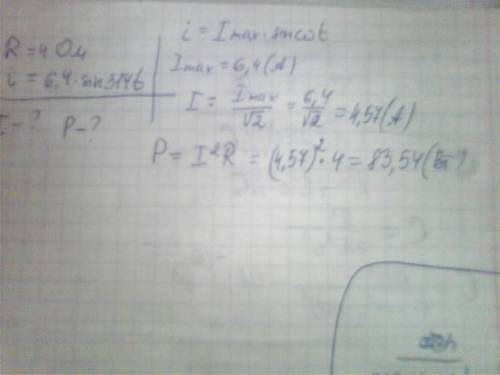 R = 4 Ом
i = 6,4 · sin 314t
I - ? P - ?
i = Imax · sin ωt
Imax = 6,4 (А)
I = Imax/√2 = 6,4/√2 = 4,57 (А)
P = I²R = (4,57)² · 4 = 83,54 (Вт)